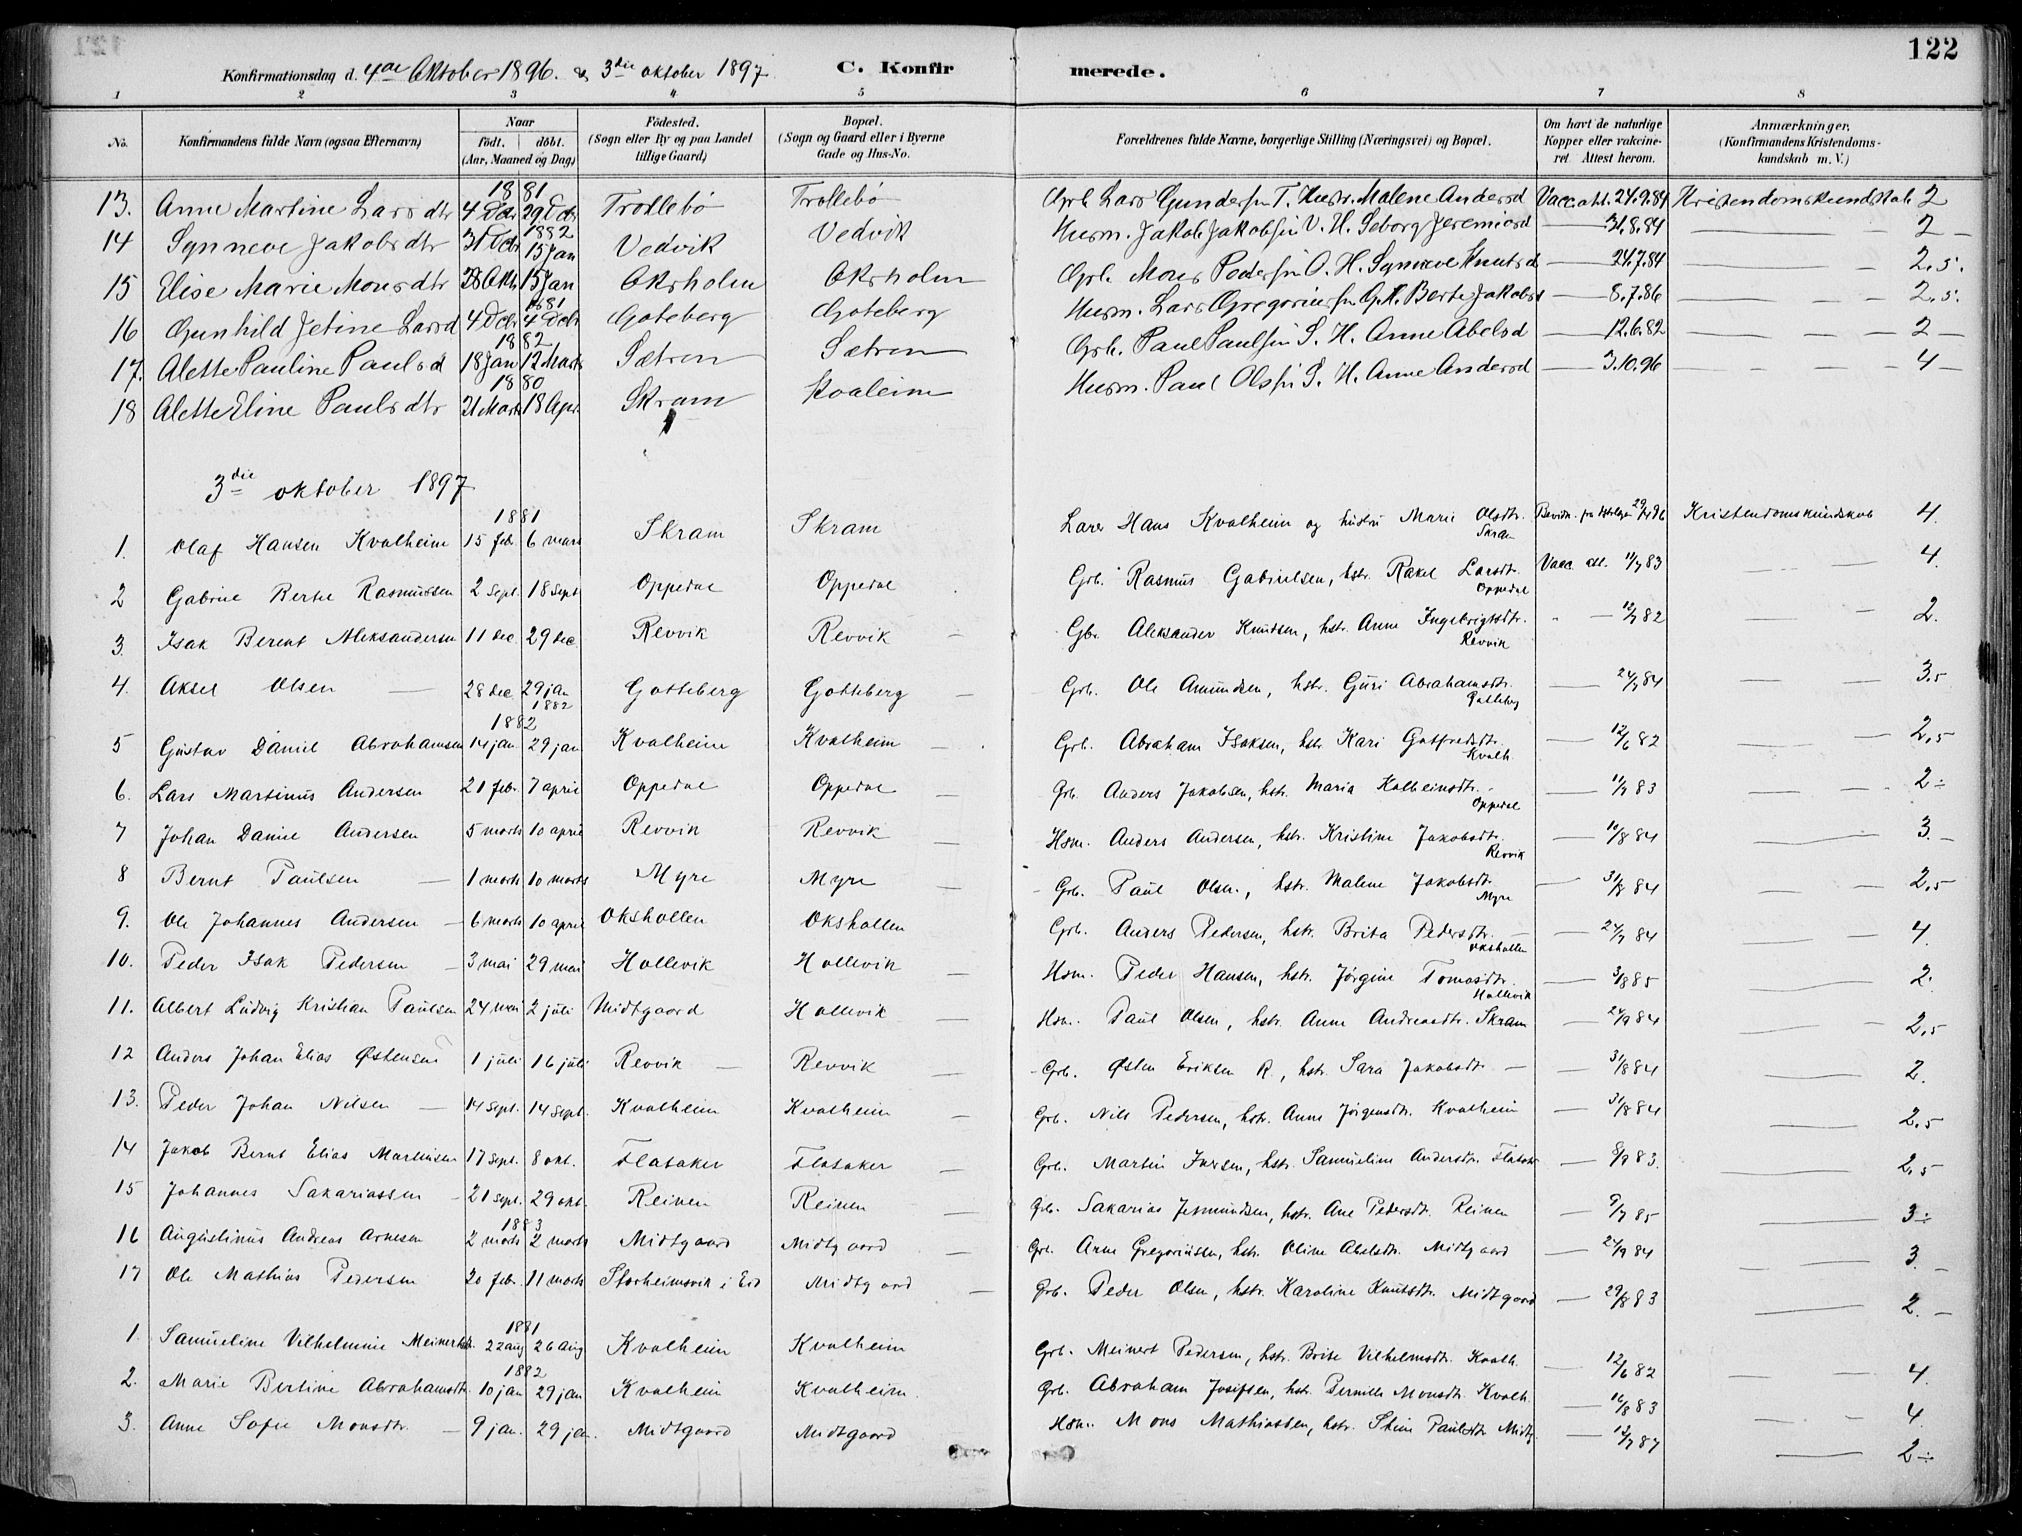 122
Konfirmationsdag d. 4de Oktober 1896. & 3die oktober 1897. C. Konfirmerede.
1 2 3 4 5 6 7 8
No. Konfirmandens fulde Navn (ogsaa Efternavn) Naar födt. döbt. (Aar, Maaned og Dag) Födested. (Sogn eller By og paa Landet tillige Gaard) Bopæl. (Sogn og Gaard eller i Byerne Gade og Hus-No. Forældrenes fulde Navne, borgerlige Stilling (Næringsvei) og Bopæl. Om havt de naturlige Kopper eller vakcineret Attest herom. Anmærkninger. (Konfirmandens Kristendomskundskab m. V.)
1881
13. Anne Martine Larsdtr 4 Octr 29 Octr Trollebø Trollebø Grb Lars Gundersen T. Hustr. Malene Andersd Vacc. att. 24.9.84 Kristendomskundskab 2
1882
14 Synneve Jakobsdtr 31 Octr 15 Jan Vedvik Vedvik Husm. Jakob Jakobsen V. H. Seborg Jeremiasd — 31.8.84 — 2 —
15 Elise Marie Monsdtr 28 Okt. 15 Jan Oksholm Oksholm Grb. Mons Pedersen O. H. Synneve Knutsd — 24.7.84 — 2,5.
1881
16 Gunhild Jetine Larsd 4 Octr 4 Octr Goteberg Goteberg Husm. Lars Gregoriussen G. H. Berte Jakobsd — 8.7.86 — 2,5.
1882
17. Alette Pauline Paulsd 18 Jan 12 Marts Sætren Sætren Grb. Paul Paulsen S. H. Anne Abelsd — 12.6.82 — 2 —
1880
18 Alette Eline Paulsdtr 21 Marts 18 Apr Skram Kvaleim Husm. Paul Olsen S. H. Anne Andersd — 3.10.96 — 4 —
3die oktober 1897
1881
1. Olaf Hansen Kvalheim 15 feb. 6 mars Skram Skram Lærer Hans Kvalheim og hustru Marie Olsdtr. Skram 96 Kristendomskundskab 4.
2 Gabriel Bertel Rasmussen 2 sept. 18 sept Oppedal Oppedal Grb. Rasmus Gabrielsen, hstr. Rakel Larsdtr. Oppedal Vacc. att. 11/7 83 4.
3. Isak Berent Aleksandersen 11 dec. 29 dec. Revvik Revvik — Gbr. Aleksander Knudsen, hstr. Anne Ingebrigtsdtr. Revvik " — 12/7 82 — 2.
4. Aksel Olsen — 28 dec 29 jan 1882 Gotteberg Gotteberg — Grb. Ole Amundsen, hstr. Guri Abrahamsdtr. Gotteberg — 24/7 84 — 3,5
1882
5 Gustav Daniel Abrahamsen 14 jan. 29 jan Kvalheim Kvalheim — Grb. Abraham Isaksen, hstr. Kari Gotfredsdtr. Kvalh. — 12/6 82 — 2,5
6. Lars Martinus Andersen 21 febr. 7 april Oppedal Oppedal — Grb. Anders Jakobsen, hstr. Maria Kolbeinsdtr. Oppedal — 11/7 83 — 2 ÷
7 Johan Daniel Andersen 5 marts 10 april Revvik Revvik — Hsm. Anders Andersen, hstr. Kristine Jakobsdtr. Revvik — 10/8 84 — 3. —
8 Bernt Paulsen — 1 marts 10 marts Myre Myre — Grb. Paul Olsen, hstr. Malene Jakobsdtr. Myre — 31/8 84 — 2,5
9. Ole Johannes Andersen — 6 marts 10 april Okshollen Okshollen Grb. Anders Pedersen, hstr. Brita Pedersdtr. Okshollen — 24/7 84 — 4.
10. Peder Isak Pedersen — 3 mai 29 mai Hollevik Hollevik — Hsm. Peder Hansen, hstr. Jørgine Tomasdtr. Hollevik — 3/8 85 — 2.
11. Albert Ludvig Kristian Paulsen 24 mai 2 juli Midtgaard Hollevik — Hsm. Paul Olsen, hstr. Anne Andreasdtr. Skram — 24/9 84 — 2,5
12 Anders Johan Elias Østensen 1 juli 16 juli Revvik — Revvik — Grb. Østen Eriksen R., hstr. Sara Jakobsdtr — 31/8 84 — 2.
13. Peder Johan Nilsen — 14 sept. 14 sept. Kvalheim Kvalheim — Grb. Nils Pedersen, hstr. Anne Jørgensdtr. Kvalheim — 31/8 84 — 2,5
14 Jakob Bernt Elias Martinsen 17 sept. 8 okt. Flataker Flataker — Grb. Martin Iversen, hstr. Samueline Andersdtr. Flataker — 8/9 83. — 2,5
15 Johannes Sakariassen — 21 sept. 29 okt. Reinen Reinen — Grb. Sakarias Jetmundsen, hstr. Ane Pedersdtr. Reinen — 9/7 85 — 3 ÷
1883
16 Augustinus Andreas Arnesen 2 marts 2 marts Midtgaard Midtgaard — Grb. Arne Gregoriusen, hstr. Oline Abelsdtr. Midtgaard — 24/9 84 — 3. —
17 Ole Mathias Pedersen 20 febr. 11 marts Storheimsvik i Eid Midtgaard — Grb. Peder Olsen, hstr. Karoline Knutsdtr. Midtgaard — 29/8 83 — 2. —
1881
1. Samueline Vilhelmine Meinertsdtr. 22 aug 26 aug Kvalheim Kvalheim Grb. Meinert Pedersen, hstr. Brite Vilhelmsdtr. Kvalh. — 12/6 82 — 4.
1882
2. Marie Bertine Abrahamsdtr. 10 jan 29 jan Kvalheim Kvalheim. Grb. Abraham Josefsen, hstr. Pernille Monsdtr. Kvalh. — 16/8 83 — 4.
3. Anne Sofie Monsdtr. — 9 jan. 29 jan. Midtgaard Midtgaard Hsm. Mons Mathiassen, hstr. Stine Paulsdtr Midtg. — 13/7 87 — 2 ÷